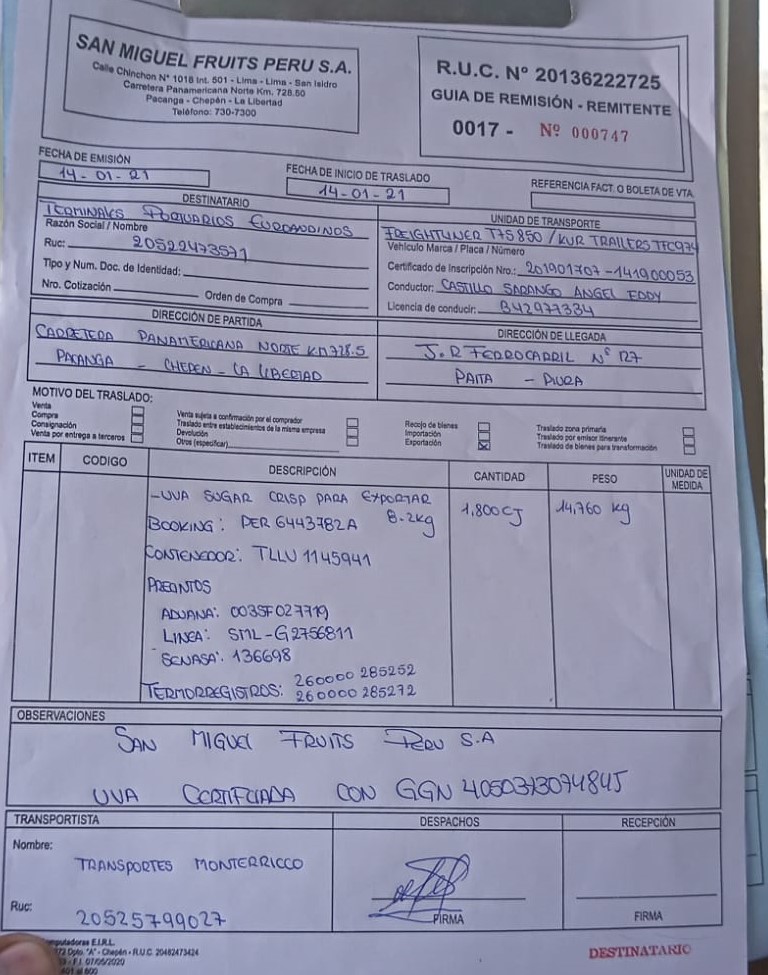 SAN MIGUEL FRUITS PERU S.A.
Calle Chinchon N° 1018 Int. 501 - Lima - Lima - San Isidro
Carretera Panamericana Norte Km. 728.50
Pacanga - Chepén - La Libertad
Teléfono: 730-7300
R.U.C. N° 20136222725
GUIA DE REMISIÓN - REMITENTE
0017 - Nº 000747
FECHA DE EMISIÓN
14-01-21
FECHA DE INICIO DE TRASLADO
14-01-21
REFERENCIA FACT. O BOLETA DE VTA.
DESTINATARIO
TERMINALES PORTUARIOS EUROANDINOS
Razón Social / Nombre
Ruc: 20522473571
Tipo y Num. Doc. de Identidad:
Nro. Cotización Orden de Compra
UNIDAD DE TRANSPORTE
FREIGHTLINER T7S850 / KUR TRAILERS TFC974
Vehículo Marca / Placa / Número
Certificado de Inscripción Nro.: 201901707-141900053
Conductor: CASTILLO SARANGO ANGEL EDDY
Licencia de conducir: B42977334
DIRECCIÓN DE PARTIDA
CARRETERA PANAMERICANA NORTE KM728.5
PACANGA - CHEPEN - LA LIBERTAD
DIRECCIÓN DE LLEGADA
J.R FERROCARRIL N° 127
PAITA - PIURA
MOTIVO DEL TRASLADO:
Venta
Compra
Consignación
Venta por entrega a terceros
Venta sujeta a confirmación por el comprador
Traslado entre establecimientos de la misma empresa
Devolución
Otros (especificar)
Recojo de bienes
Importación
Exportación
Traslado zona primaria
Traslado por emisor itinerante
Traslado de bienes para transformación
ITEM CODIGO DESCRIPCIÓN CANTIDAD PESO UNIDAD DE MEDIDA
-UVA SUGAR CRISP PARA EXPORTAR 1,800CJ 14,760 kg
BOOKING: PER 6443782A 8.2kg
CONTENEDOR: TLLU 1145941
PRECINTOS
ADUANA: 003SF027719
LINEA: SML-G2756811
SENASA: 136698
TERMORREGISTROS: 260000 285252
260000 285272
OBSERVACIONES
SAN MIGUEL FRUITS PERU S.A
UVA CERTIFCIADA CON GGN
TRANSPORTISTA
Nombre:
TRANSPORTES MONTERRICCO
Ruc: 20525799027
DESPACHOS
FIRMA
RECEPCIÓN
FIRMA
mputadoras E.I.R.L.
Dpto. "A" - Chepén - R.U.C. 20482473424
F.I. 07/05/2020
401 al 800
DESTINATARIO